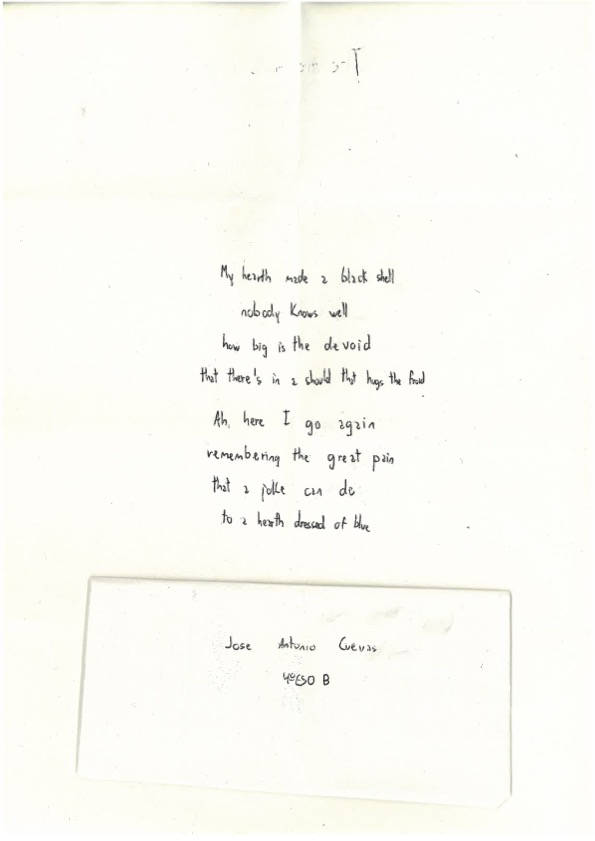 My hearth made a black shell
nobody knows well
how big is the devoid
that there's in a should that hugs the froid
Ah, here I go again
remembering the great pain
that a joke can do
to a hearth dressed of blue
Jose Antonio Cuevas
4ºESO B